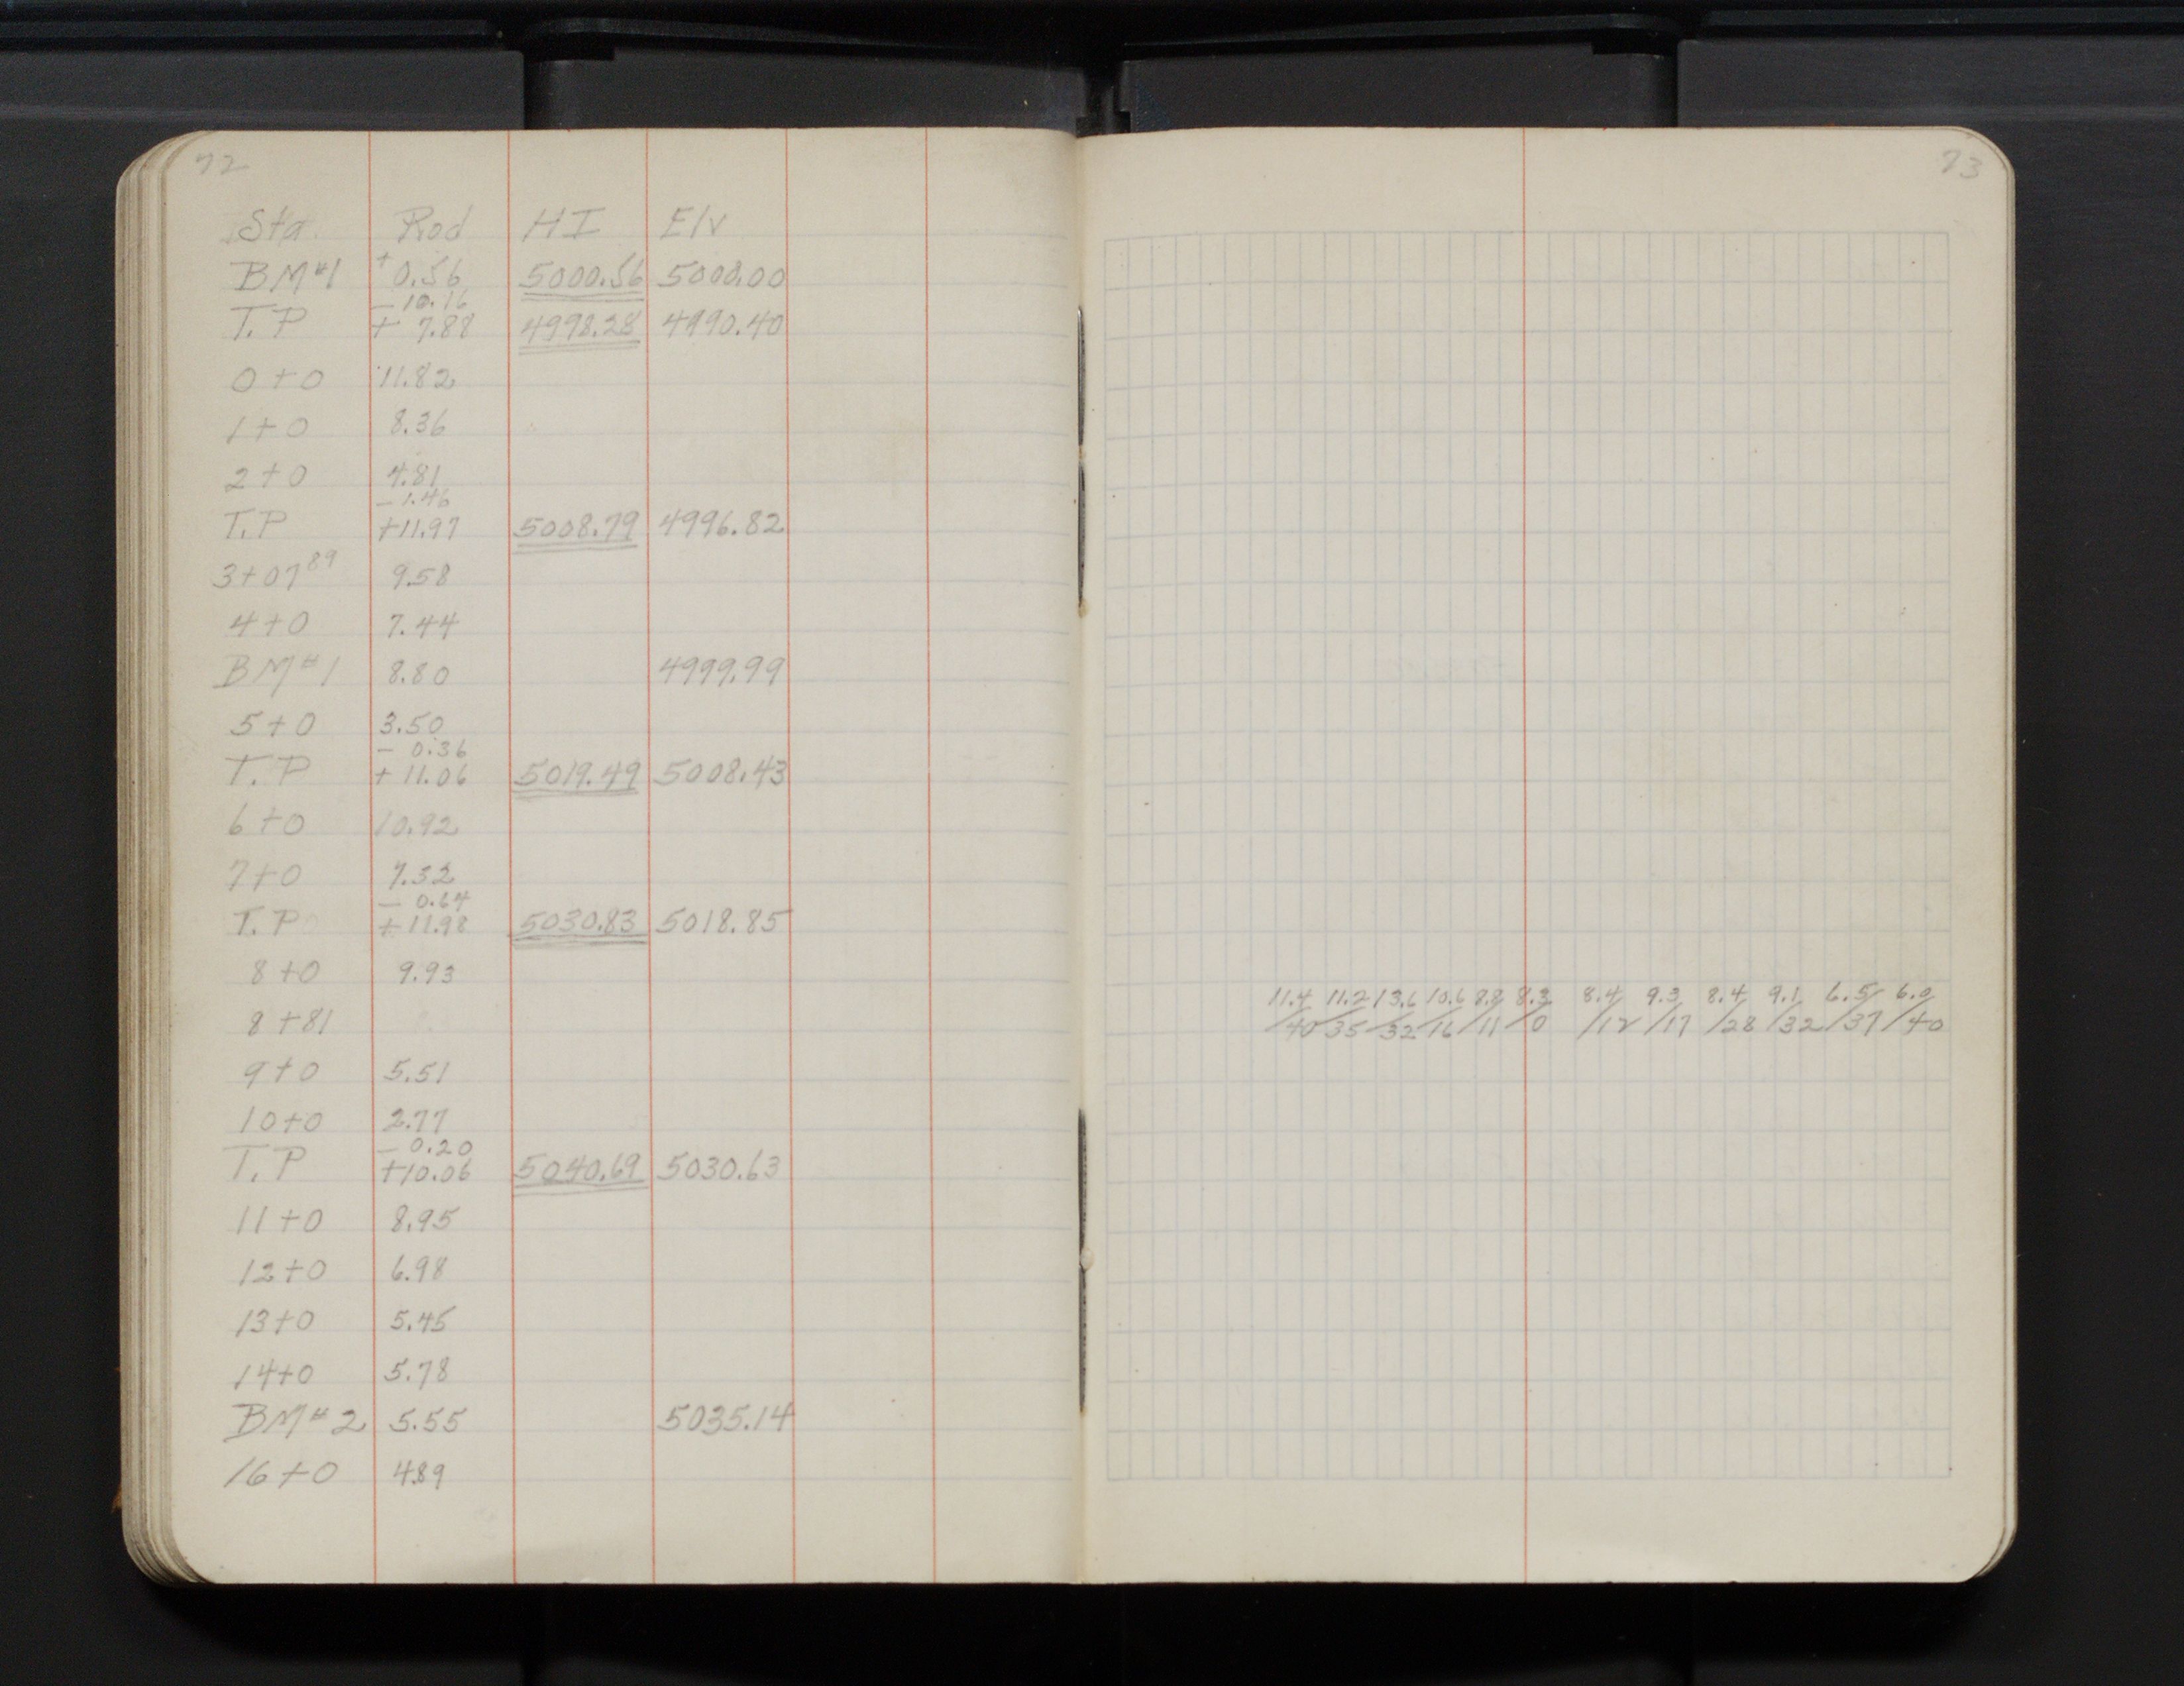 72
Sta. Rod HI Elv
BM#1 + 0.56 5000.56 5000.00
− 10.16
T.P + 7.88 4998.28 4990.40
0+0 11.82
1+0 8.36
2+0 4.81
− 1.46
T.P +11.97 5008.79 4996.82
3+07 89 9.58
4+0 7.44
BM#1 8.80 4999.99
5+0 3.50
− 0.36
T.P + 11.06 5019.49 5008.43
6+0 10.92
7+0 7.32
− 0.64
T.P + 11.98 5030.83 5018.85
8+0 9.93
8+81
9+0 5.51
10+0 2.77
− 0.20
T.P +10.06 5040.69 5030.63
11+0 8.95
12+0 6.98
13+0 5.45
14+0 5.78
BM#2 5.55 5035.14
16+0 4.89
73
11.4 11.2 13.6 10.6 8.8 8.3 8.4 9.3 8.4 9.1 6.5 6.0
/40 /35 /32 /16 /11 /0 /12 /17 /28 /32 /37 /40